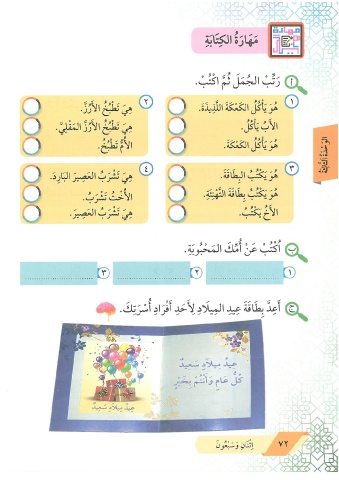 مَهَارَةُ الكِتَابَةِ
أ رَتِّبْ الجُمَلَ ثُمَّ اكْتُبْ.
١
هُوَ يَأْكُلُ الكَعْكَةَ اللَّذِيذَةَ.
الأَبُ يَأْكُلُ.
هُوَ يَأْكُلُ الكَعْكَةَ.
٢
هِيَ تَطْبُخُ الأَرُزَّ.
هِيَ تَطْبُخُ الأَرُزَّ المَقْلِيَّ.
الأُمُّ تَطْبُخُ.
٣
هُوَ يَكْتُبُ البِطَاقَةَ.
هُوَ يَكْتُبُ بِطَاقَةَ التَّهْنِئَةِ.
الأَخُ يَكْتُبُ.
٤
هِيَ تَشْرَبُ العَصِيرَ البَارِدَ.
الأُخْتُ تَشْرَبُ.
هِيَ تَشْرَبُ العَصِيرَ.
ب اُكْتُبْ عَنْ أُمِّكَ المَحْبُوبَةِ.
١ ٢ ٣
ج أَعِدَّ بِطَاقَةَ عِيدِ المِيلَادِ لِأَحَدِ أَفْرَادِ أُسْرَتِكَ.
عِيدُ مِيلَادٍ سَعِيدٌ
كُلُّ عَامٍ وَأَنْتُمْ بِخَيْرٍ
عِيدُ مِيلَادٍ سَعِيدٌ
الوَحْدَةُ الثَّالِثَةُ
٧٢ اِثْنَانِ وَسَبْعُونَ